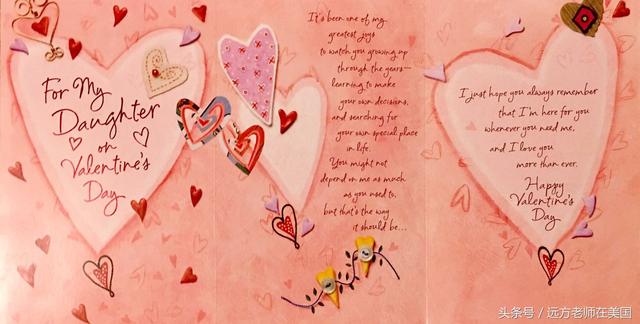 For My
Daughter
on
Valentine's
Day
It's been one of my
greatest joys
to watch you growing up
through the years—
learning to make
your own decisions,
and searching for
your own special place
in life.
You might not
depend on me as much
as you used to,
but that's the way
it should be...
I just hope you always remember
that I'm here for you
whenever you need me,
and I love you
more than ever.
Happy
Valentine's
Day
头条号 / 远方老师在美国